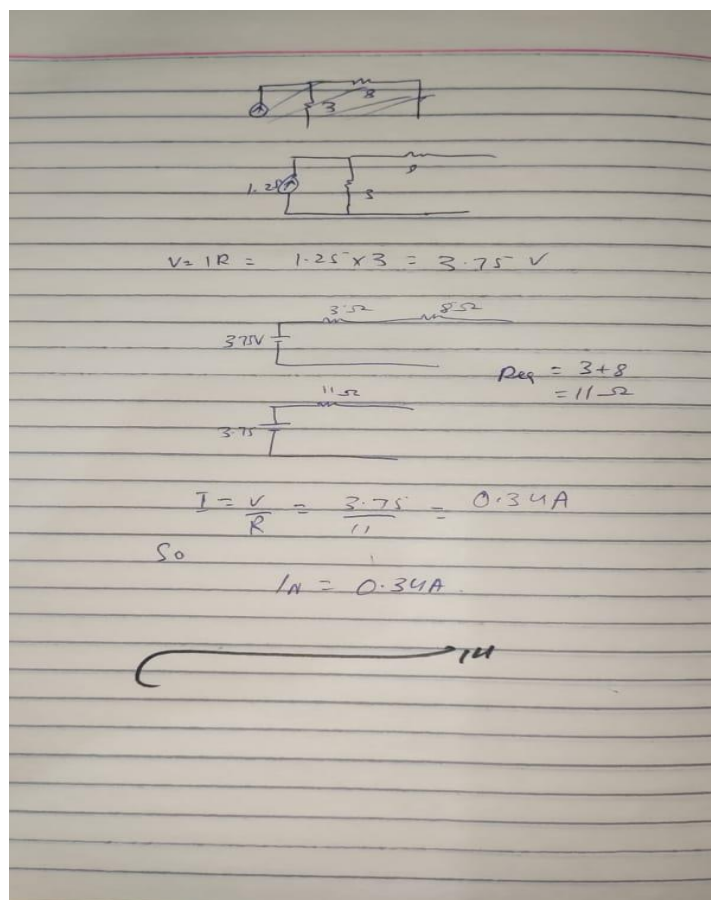 8
3
8
1.25
3
V= IR = 1.25 x 3 = 3.75 V
3Ω 8Ω
3.75V
Req = 3+8
= 11Ω
11Ω
3.75
I = V/R = 3.75/11 = 0.34A
So
IN = 0.34A